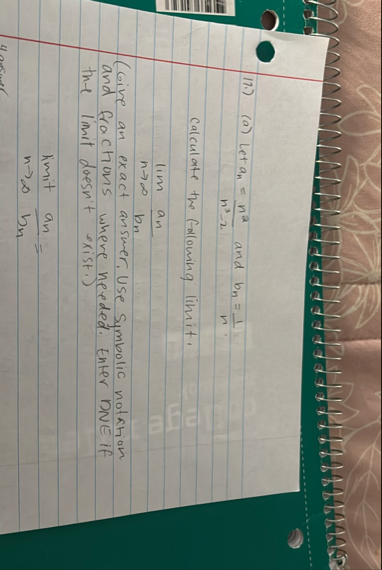 17.) (a) Let an = n² / n³-2 and bn = 1 / n.
calculate the following limit.
lim an
n→∞ bn
(Give an exact answer. Use symbolic notation
and fractions where needed. Enter DNE if
the limit doesn't exist.)
limit an =
n→∞ bn
answer